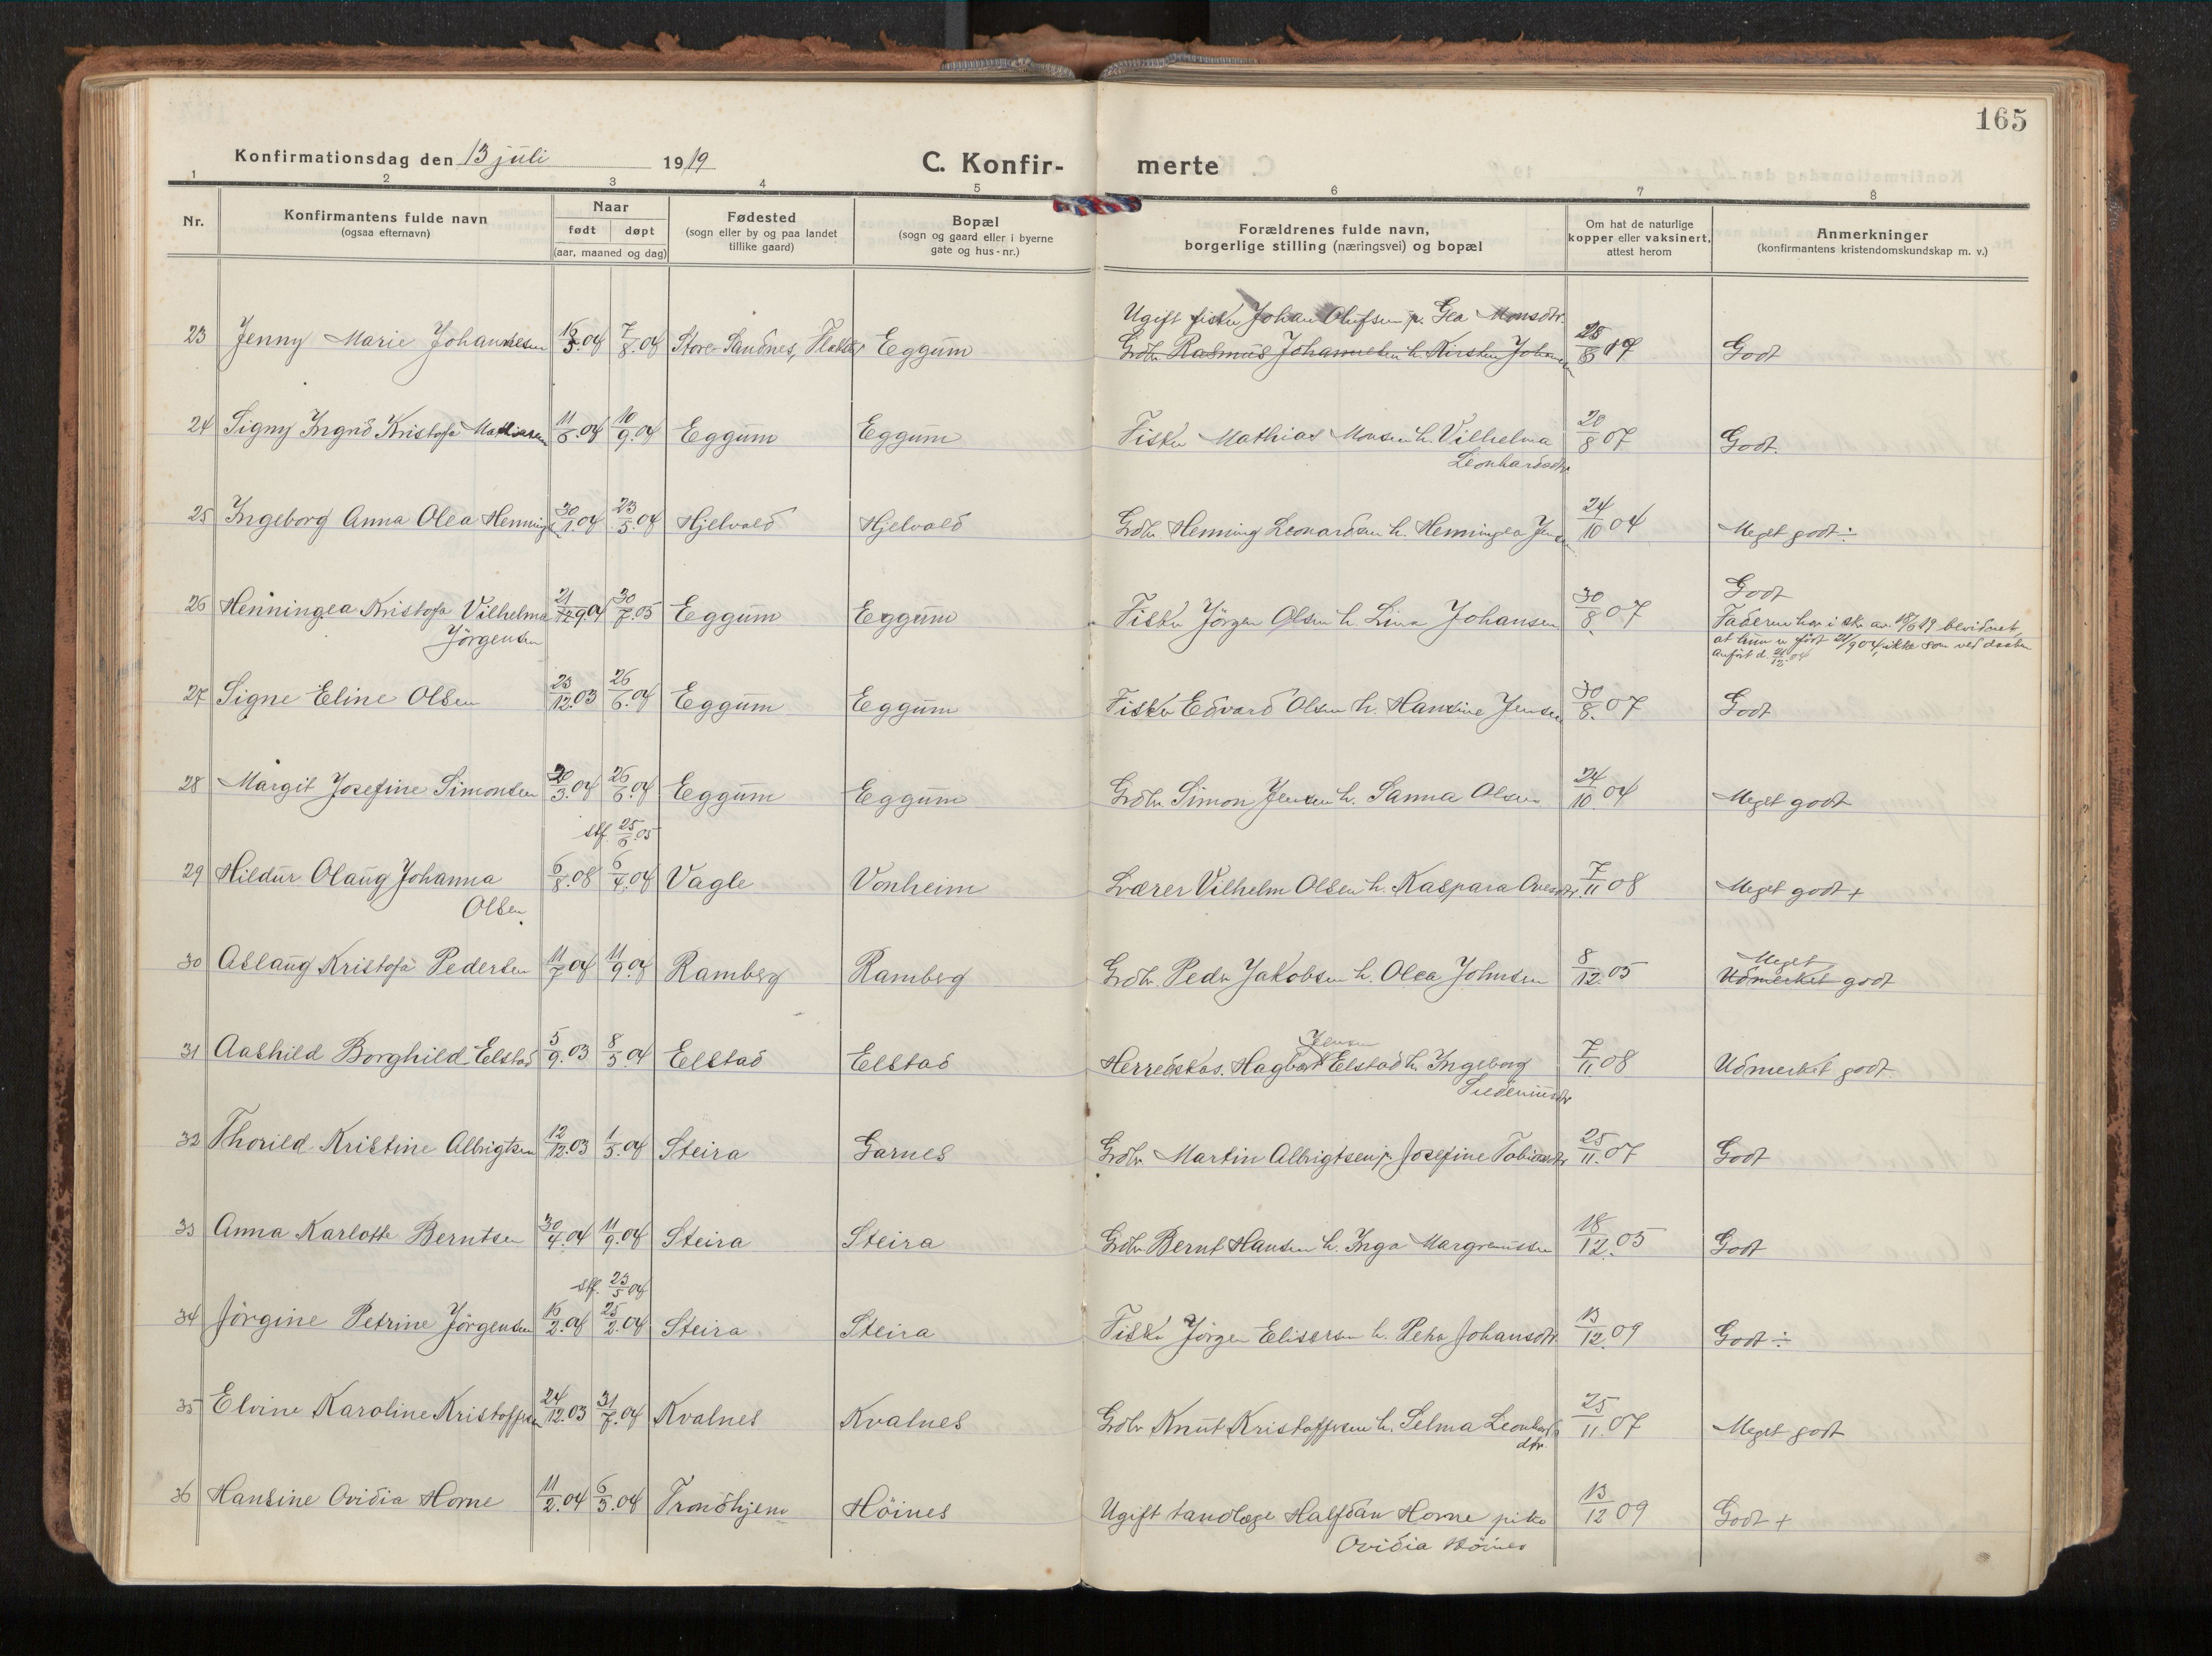 165
Konfirmationsdag den 13 juli 1919
C. Konfir- merte
1 2 3 4 5 6 7 8
Nr.
Konfirmantens fulde navn
(ogsaa efternavn)
Naar
født døpt
(aar, maaned og dag)
Fødested
(sogn eller by og paa landet
tillike gaard)
Bopæl
(sogn og gaard eller i byerne
gate og hus-nr.)
Forældrenes fulde navn,
borgerlige stilling (næringsvei) og bopæl
Om hat de naturlige
kopper eller vaksinert,
attest herom
Anmerkninger
(konfirmantens kristendomskundskap m. v.)
Ugift fisker Johan Olufsen p. Gea Monsdtr.
23 Jenny Marie Johannesen 7/8.04 Store Sandnes, Eggum Grdbr Rasmus Johannesen h. Kirsten 28/8 07 Godt
24 Signy Ingrid Kristofa Mathiasen 11/6.04 10/9.04 Eggum Eggum Fisker Mathias Monsen h. Vilhelma 20/8 07 Godt.
Leonhardsdtr
25 Ingeborg Anna Olea Hennings 30/1.04 23/5.04 Hjelvold Hjelvold Grdbr Henning Leonardsen h. Henningea Jensen 24/10 04 Meget godt ÷
26 Henningea Kristofa Vilhelma 21/9.04 30/7.05 Eggum Eggum Fisker Jörgen Olsen h. Lina Johansen 30/8 07 Godt
Jörgensen
Faderen har i skr. av 19 bevidnet,
at hun er født 21/9 04, ikke som ved daaben
anført d. 21/12 04
27 Signe Eline Olsen 23/12.03 26/6.04 Eggum Eggum Fisker Edvard Olsen h. Hansine Jensen 30/8.07 Godt
28 Margit Josefine Simonsen 20/3.04 26/6.04 Eggum Eggum Grdbr Simon Jensen h. Sanna Olsen 24/10 04 Meget godt
stf. 25/6.05
29 Hildur Olaug Johanna 6/8.08 6/4.04 Vagle Vonheim Lærer Vilhelm Olsen h. Kaspara Ovesdtr. 7/11 08 Meget godt +
Olsen
30 Aslaug Kristofa Pedersen 11/7.04 11/9.04 Ramberg Ramberg Grdbr. Peder Jakobsen h. Olea Johnsen 8/12.05 Meget
Udmerket godt
31 Aashild Borghild Elstad 5/9.03 8/5.04 Elstad Elstad Herredskas. Hagbart Jensen Elstad h. Ingeborg 7/11.08 Udmerket godt
32 Thorild Kristine Albrigtsen 12/12.03 1/5.04 Steira Garnes Grdbr. Martin Albrigtsen p. Josefine Tobiasdtr 25/11.07 Godt
33 Anna Karlotte Berntsen 30/4.04 11/9.04 Steira Steira Grdbr Bernt Hansen h. Inga 18/12.05 Godt
stf. 23/5 04
34 Jörgine Petrine Jörgensen 15/2.04 25/2.04 Steira Steira Fisker Jörgen Elisersen h. Petra Johansdtr. 13/12.09 Godt ÷
35 Elvine Karoline Kristoffersen 24/12.03 31/7.04 Kvalnes Kvalnes Grdbr Knut Kristoffersen h. Selma Leonhards 25/11.07 Meget godt
dtr.
36 Hansine Ovidia Horne 11/2.04 6/3.04 Trondhjem Höines Ugift tandlæge Halfdan Horne pike 13/12 09 Godt +
Ovidia Höines